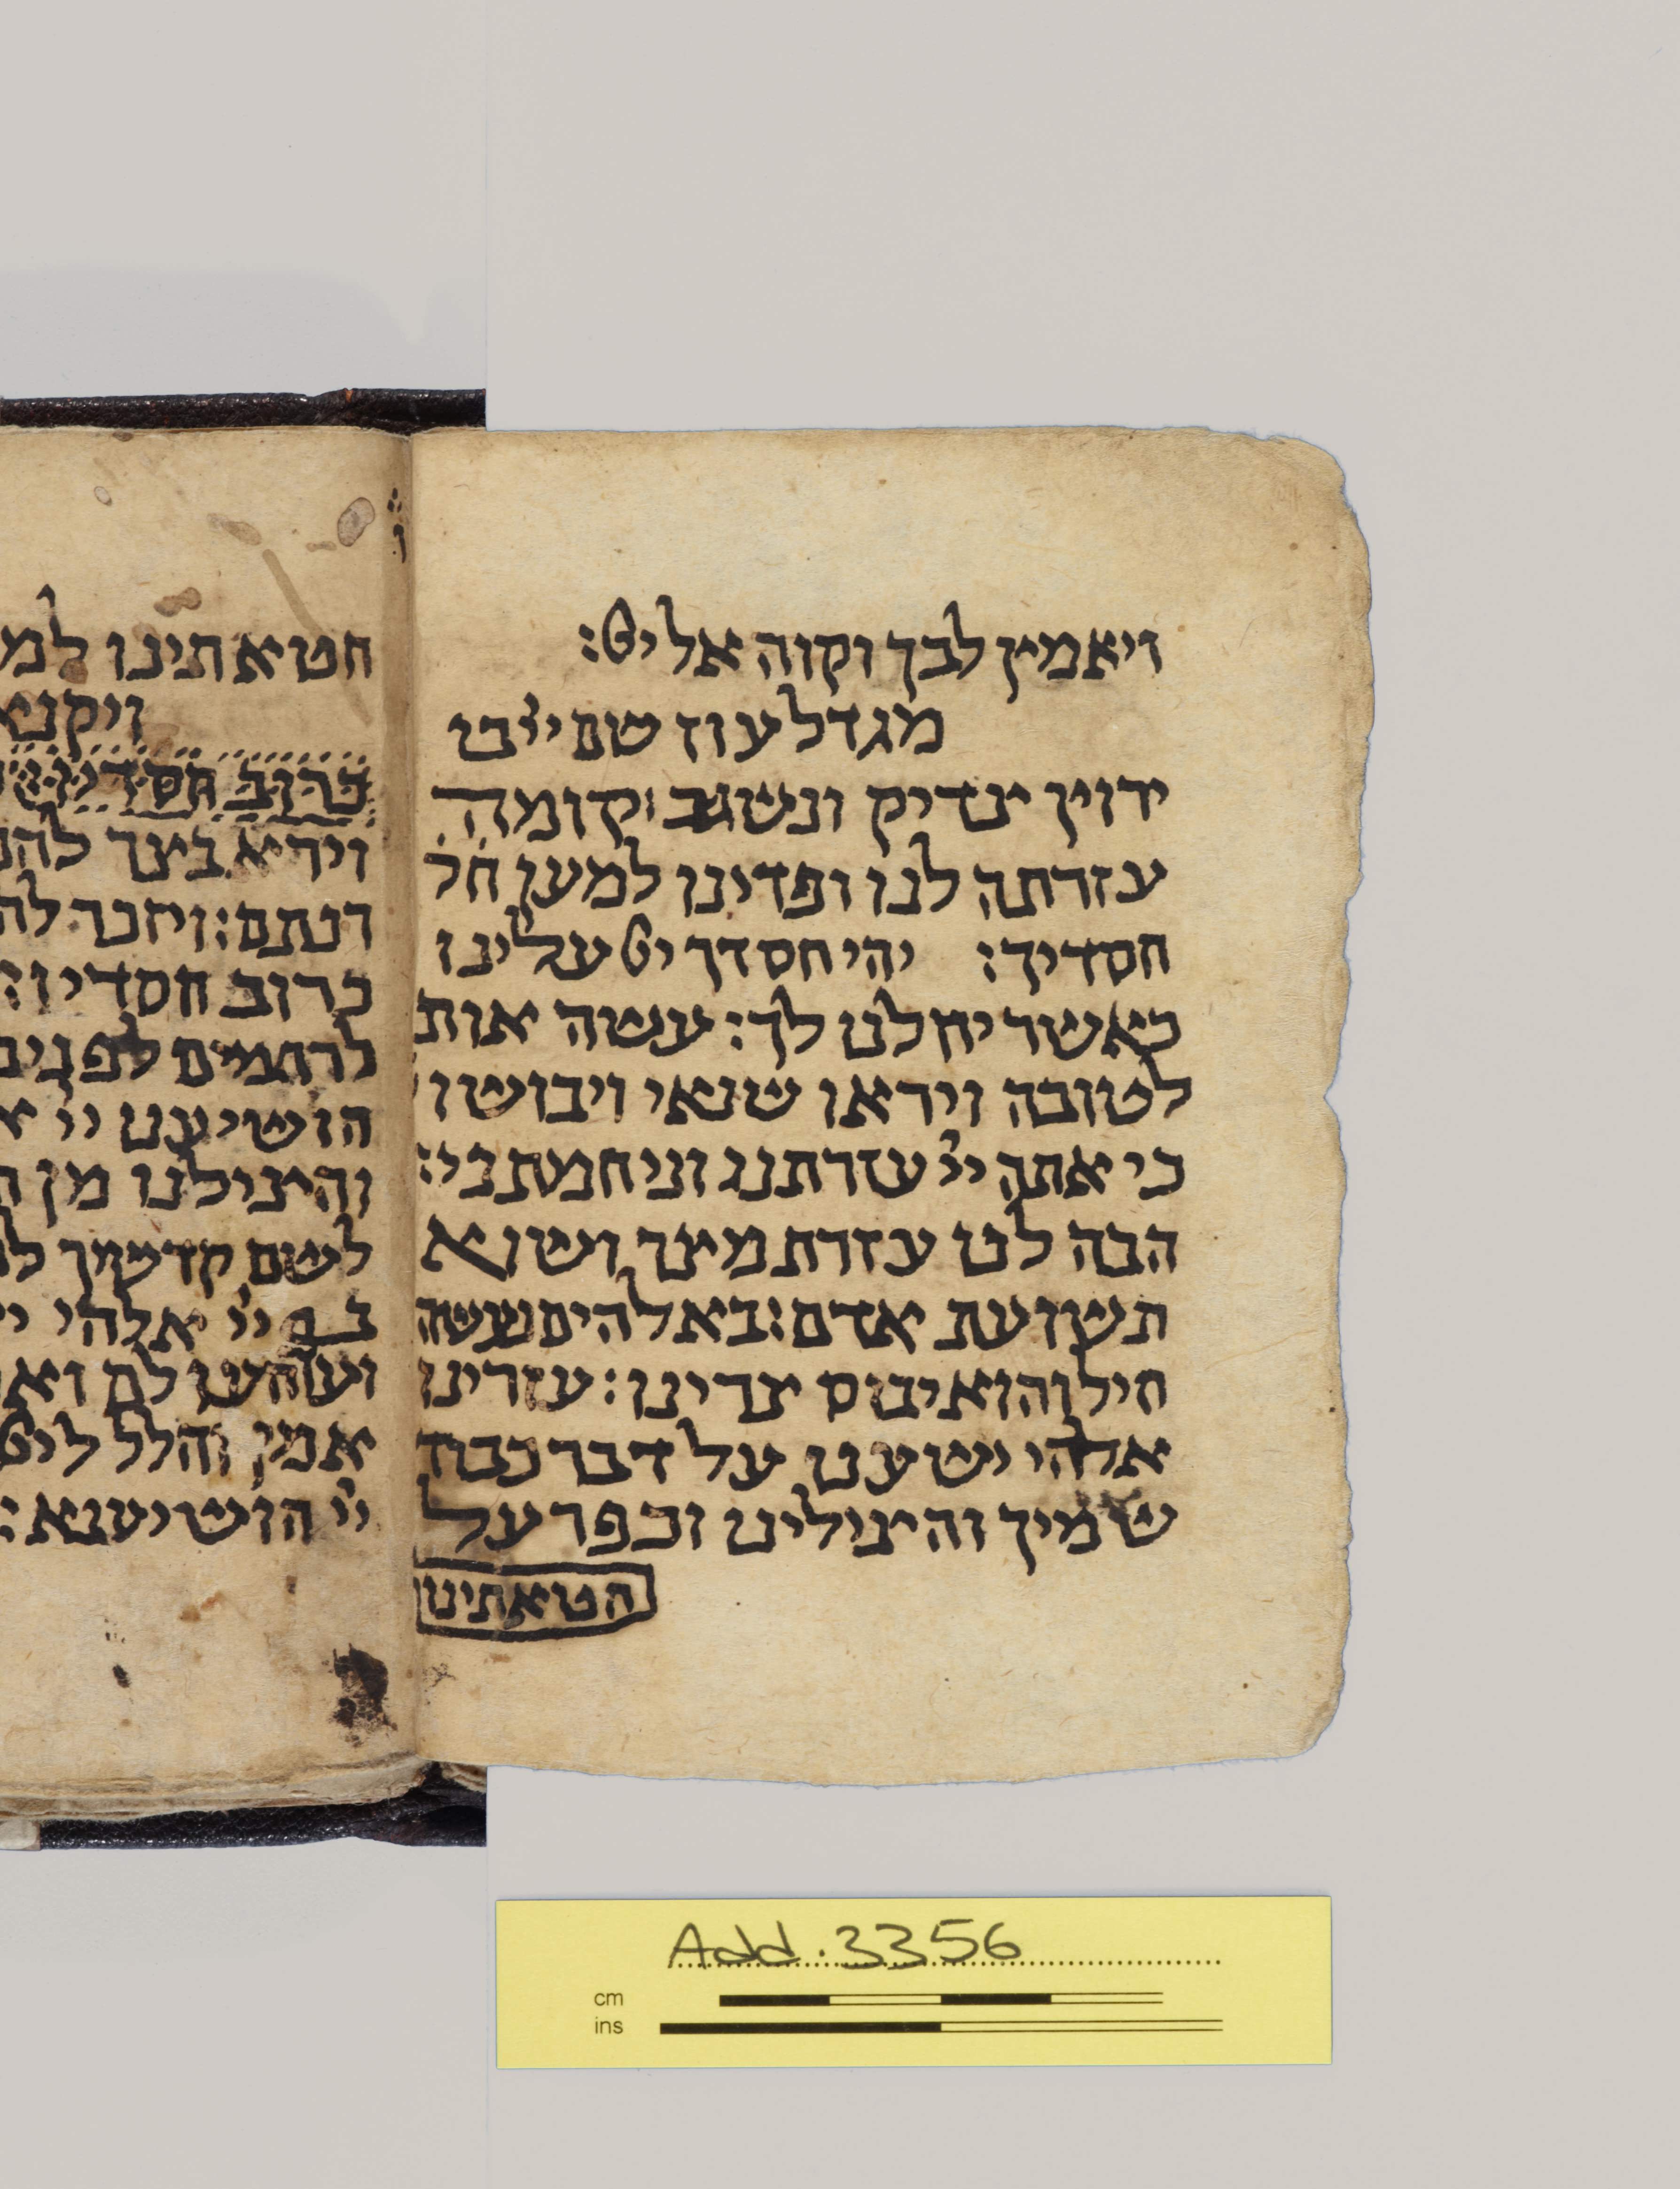 ויאמיץ לבך וקוה אל יי׃
מגדל עוז שם ייי בו
ירוץ ינדיק ונשגב׃ קומה
עזרתה לנו ופדינו למען חל
חסדיך׃ יהי חסדך יי עלינו
כאשר יחלנו לך׃ עשה אות
לטובה ויראו שנאי ויבושו
כי אתה יי עזרתני וניחמתני׃
הבה לנו עזרת מצר ושוא
תשועת אדם׃ באלהים נעשה
חיל והוא יבוס צרינו׃ עזרינו
אלהי ישענו על דבר כבוד
שמיך והצילינו וכפר על
חטאתינו
חטאתינו למ
ויקנא
כרוב חסדיו
וירא בצר להם
רנתם׃ ויזכר לה
כרוב חסדיו׃
לרחמים לפני
הושיענו יי א
והצילנו מן ה
לשם קדשיך ל
יי אלהי י
אמן הללו
יי הושיענא׃
Add. 3356
cm
ins